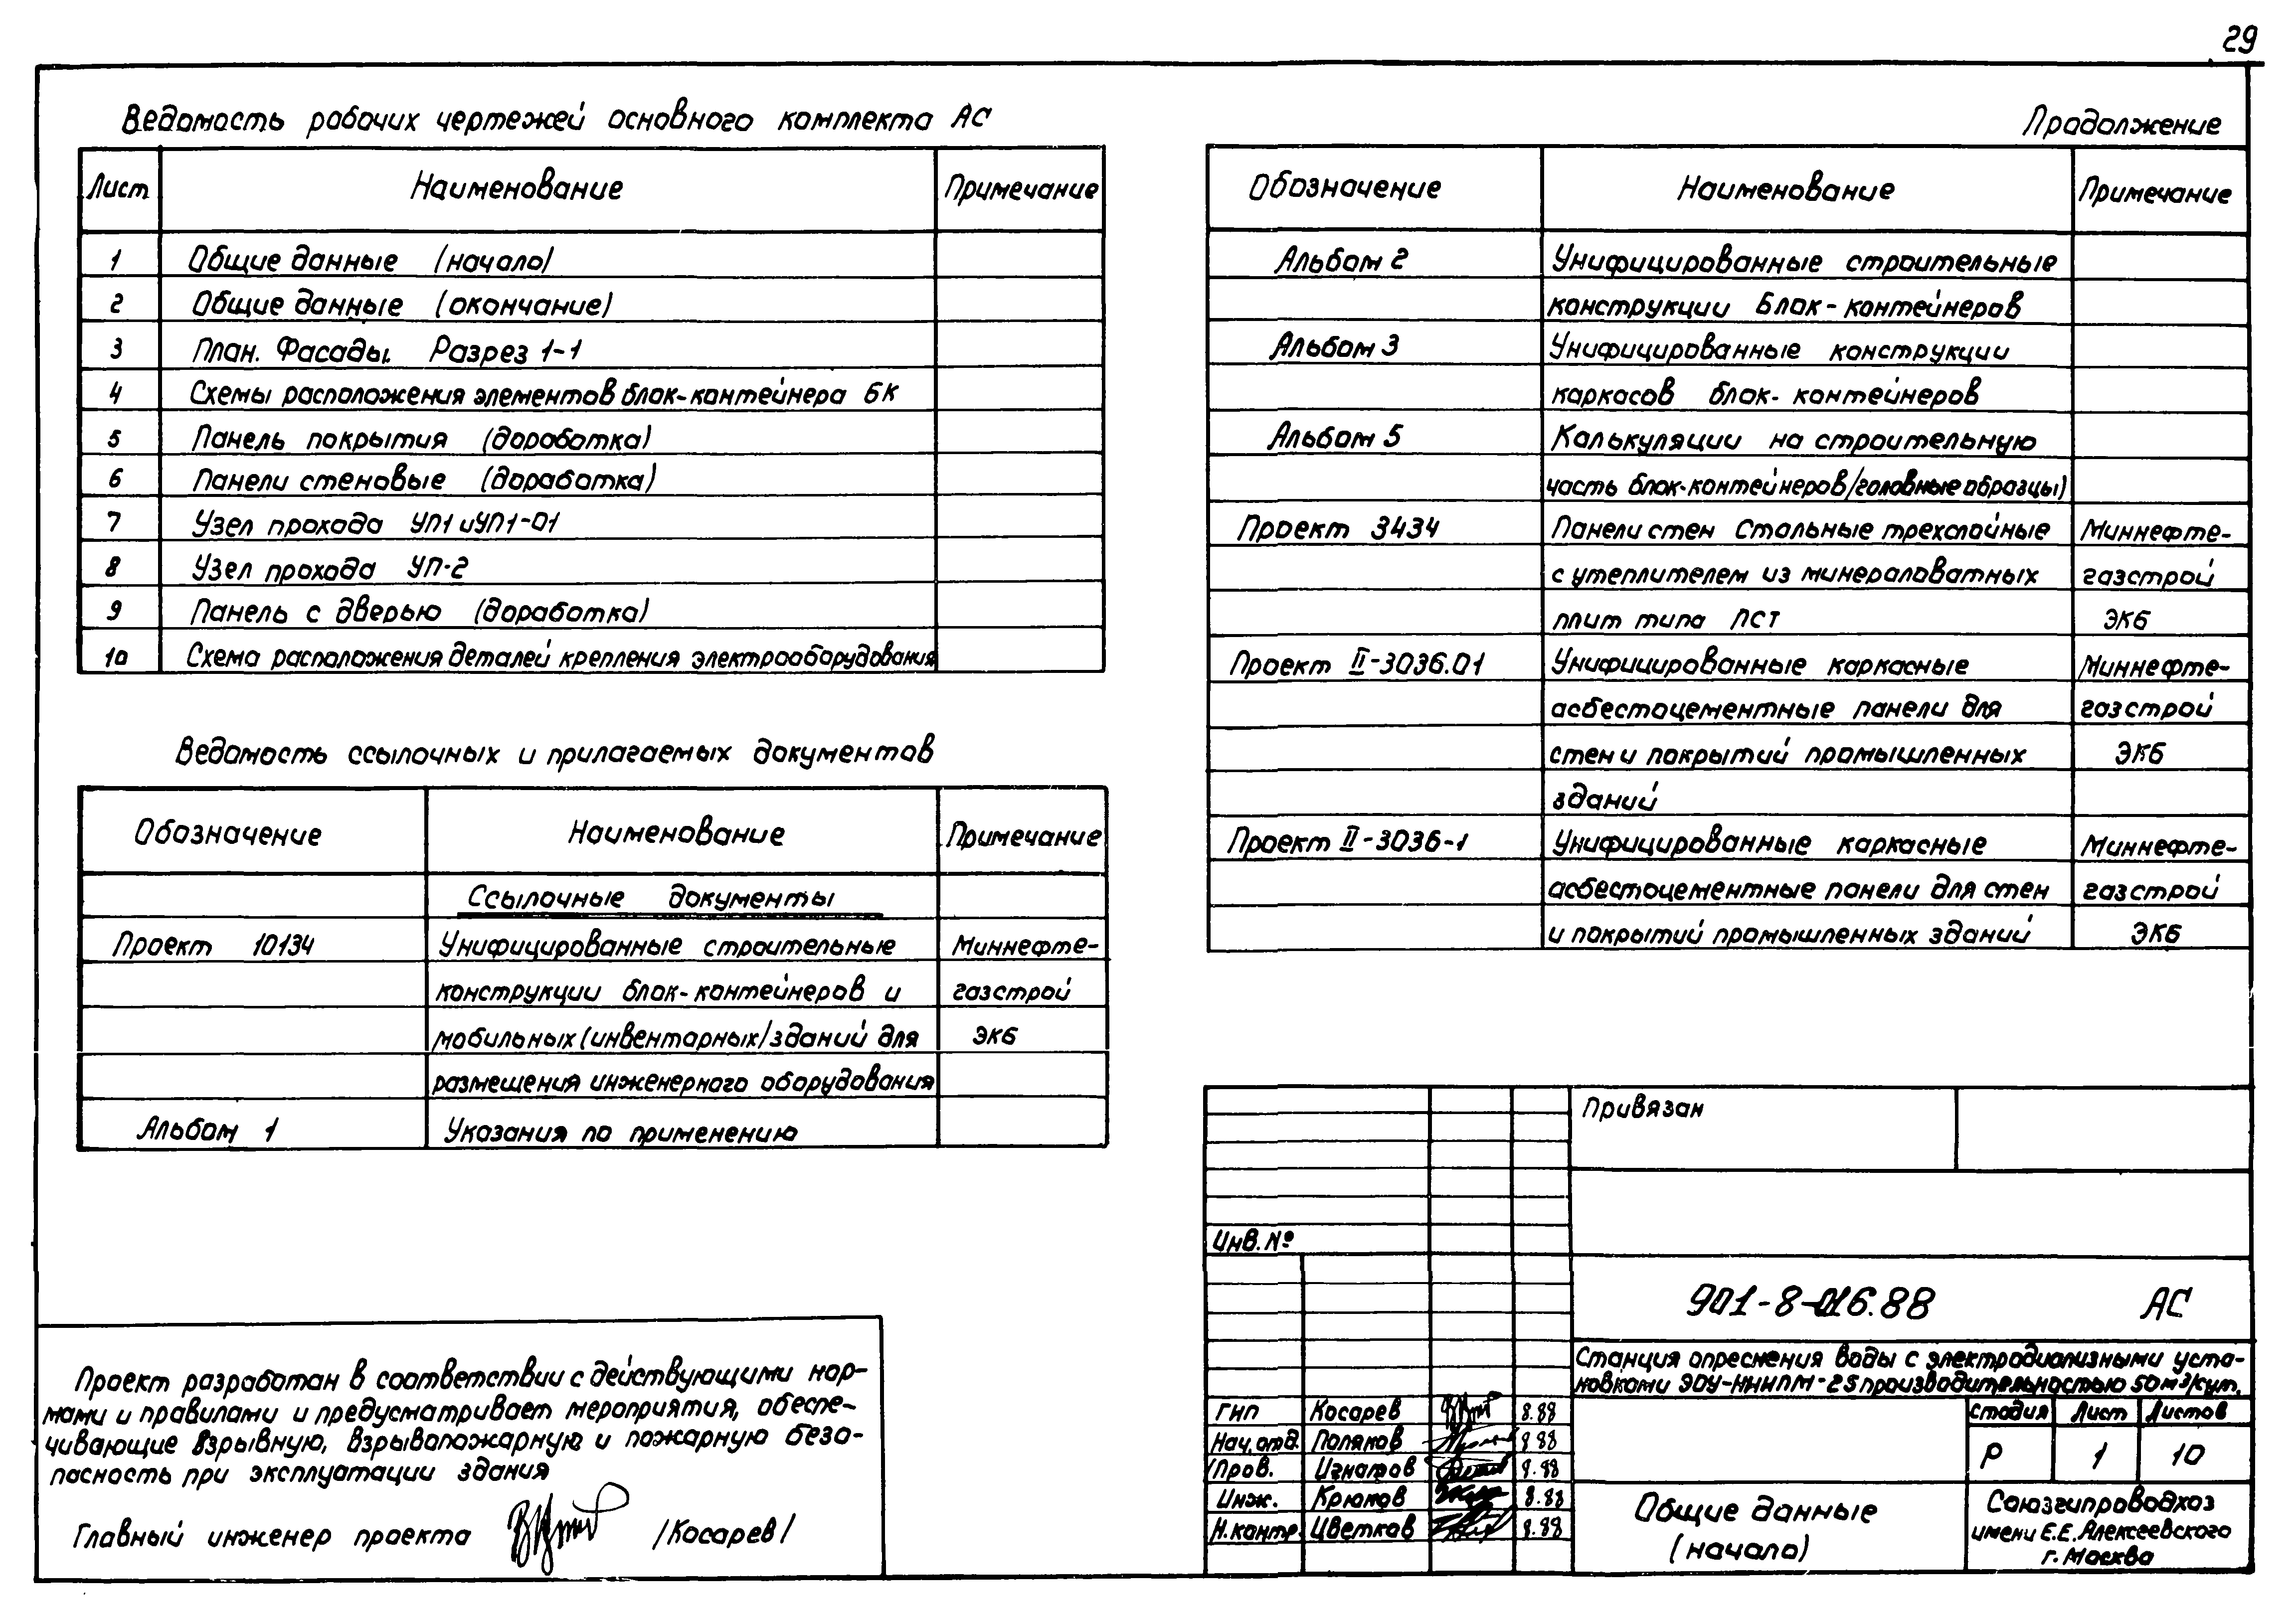 29
Ведомость рабочих чертежей основного комплекта АС
Лист Наименование Примечание
1 Общие данные (начало)
2 Общие данные (окончание)
3 План. Фасады. Разрез 1-1
4 Схемы расположения элементов блок-контейнера БК
5 Панель покрытия (доработка)
6 Панели стеновые (доработка)
7 Узел прохода УП1 и УП1-01
8 Узел прохода УП-2
9 Панель с дверью (доработка)
10 Схема расположения деталей крепления электрооборудования
Ведомость ссылочных и прилагаемых документов
Обозначение Наименование Примечание
Ссылочные документы
Проект 10134 Унифицированные строительные Миннефте-
конструкции блок-контейнеров и газстрой
мобильных (инвентарных) зданий для ЭКБ
размещения инженерного оборудования
Альбом 1 Указания по применению
Проект разработан в соответствии с действующими нор-
мами и правилами и предусматривает мероприятия, обеспе-
чивающие взрывную, взрывопожарную и пожарную безо-
пасность при эксплуатации здания
Главный инженер проекта /Косарев/
Продолжение
Обозначение Наименование Примечание
Альбом 2 Унифицированные строительные
конструкции Блок-контейнеров
Альбом 3 Унифицированные конструкции
каркасов блок-контейнеров
Альбом 5 Калькуляции на строительную
часть блок-контейнеров (головные образцы)
Проект 3434 Панели стен стальные трехслойные Миннефте-
с утеплителем из минераловатных газстрой
плит типа ПСТ ЭКБ
Проект II-3036.01 Унифицированные каркасные Миннефте-
асбестоцементные панели для газстрой
стен и покрытий промышленных ЭКБ
зданий
Проект II-3036-1 Унифицированные каркасные Миннефте-
асбестоцементные панели для стен газстрой
и покрытий промышленных зданий ЭКБ
Привязан
Инв. №
901-8-016.88 АС
Станция опреснения воды с электродиализными уста-
новками ЭДУ-НИИПМ-25 производительностью 50 м³/сут.
ГИП Косарев 8.88
Нач. отд. Поляков 8.88
Пров. Игнатов 8.88
Инж. Крюков 8.88
Н. контр. Цветков 8.88
Стадия Лист Листов
Р 1 10
Общие данные
(начало)
Союзгипроводхоз
имени Е.Е. Алексеевского
г. Москва